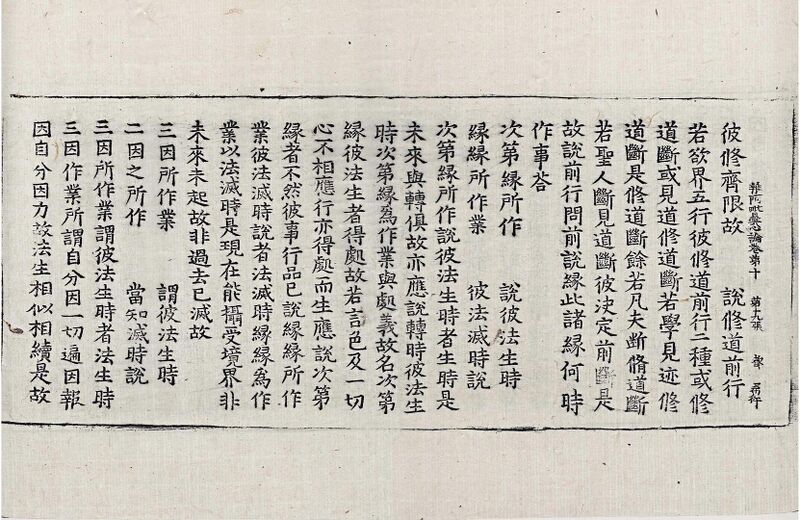 彼修齊限故　說修道前行
雜阿毗曇心論卷第十　第十九張　聲
若欲界五行彼修道前行二種或修
道斷或見道修道斷若學見迹修
道斷是修道斷餘若凡夫斷脩道斷
若聖人斷見道斷彼決定前斷是
故說前行問前說緣此諸緣何時
作事荅
次第緣所作　說彼法生時
緣緣所作業　彼法滅時說
次第緣所作說彼法生時者生時是
未來與轉俱故亦應說轉時彼法生
時次第緣為作業與處義故名次第
緣彼法生者得處故若言色及一切
心不相應行亦得處而生應說次第
緣者不然彼事行品已說緣緣所作
業彼法滅時說者法滅時緣緣為作
業以法滅時是現在能攝受境界非
未來未起故非過去已滅故
三因所作業　謂彼法生時
二因之所作　當知滅時說
三因所作業謂彼法生時者法生時
三因作業所謂自分因一切遍因報
因自分因力故法生相似相續是故